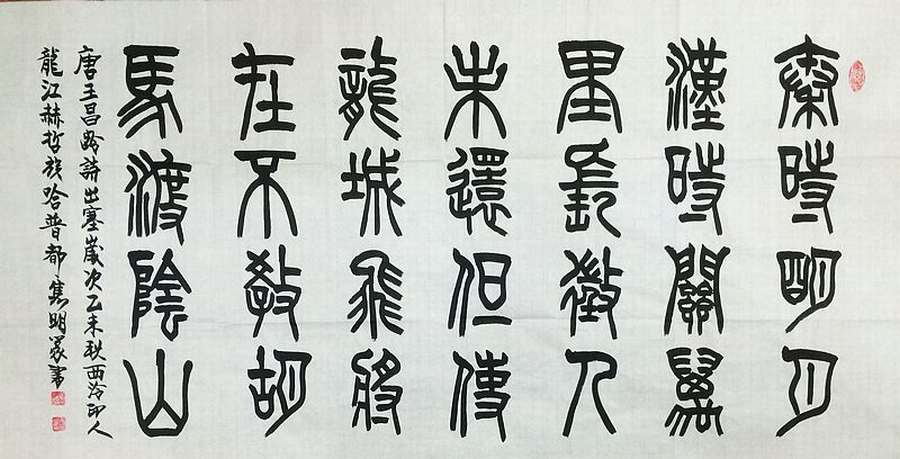 秦時明月
漢時關萬
里長徵人
未還但使
龍城飛將
在不教胡
馬渡陰山
唐王昌齡詩出塞歲次乙未秋西泠印人
龍江赫哲族哈普都隽明篆書